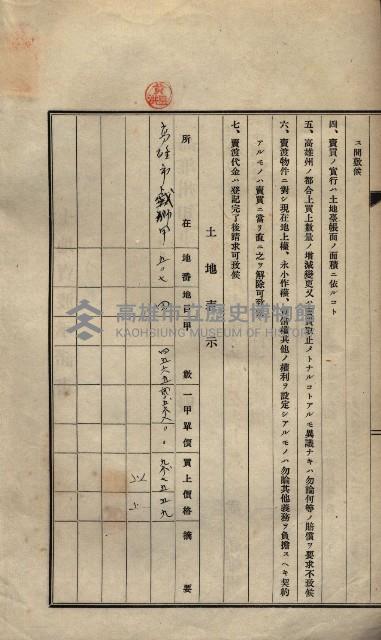 ス間敷候
四、賣買ノ實行ハ土地臺帳面ノ面積ニ依ルコト
五、高雄州ノ都合上買上數量ノ增減變更又ハ賣買取止メトナルコトアルモ異議ナキハ勿論何等ノ賠償ヲ要求不致候
六、賣渡物件ニ對シ現在地上權、永小作權、賃借權其他ノ權利ヲ設定シアルモノハ勿論其他義務ヲ負擔スヘキ契約
アルモノハ賣買ニ當リ直ニ之ヲ解除可致候
七、賣渡代金ハ登記完了後請求可致候
土地表示
所在 地番 地目 甲數 一甲單價 買上價格 摘要
高雄市 戲獅甲 五〇七
高雄市立歷史博物館
KAOHSIUNG MUSEUM OF HISTORY